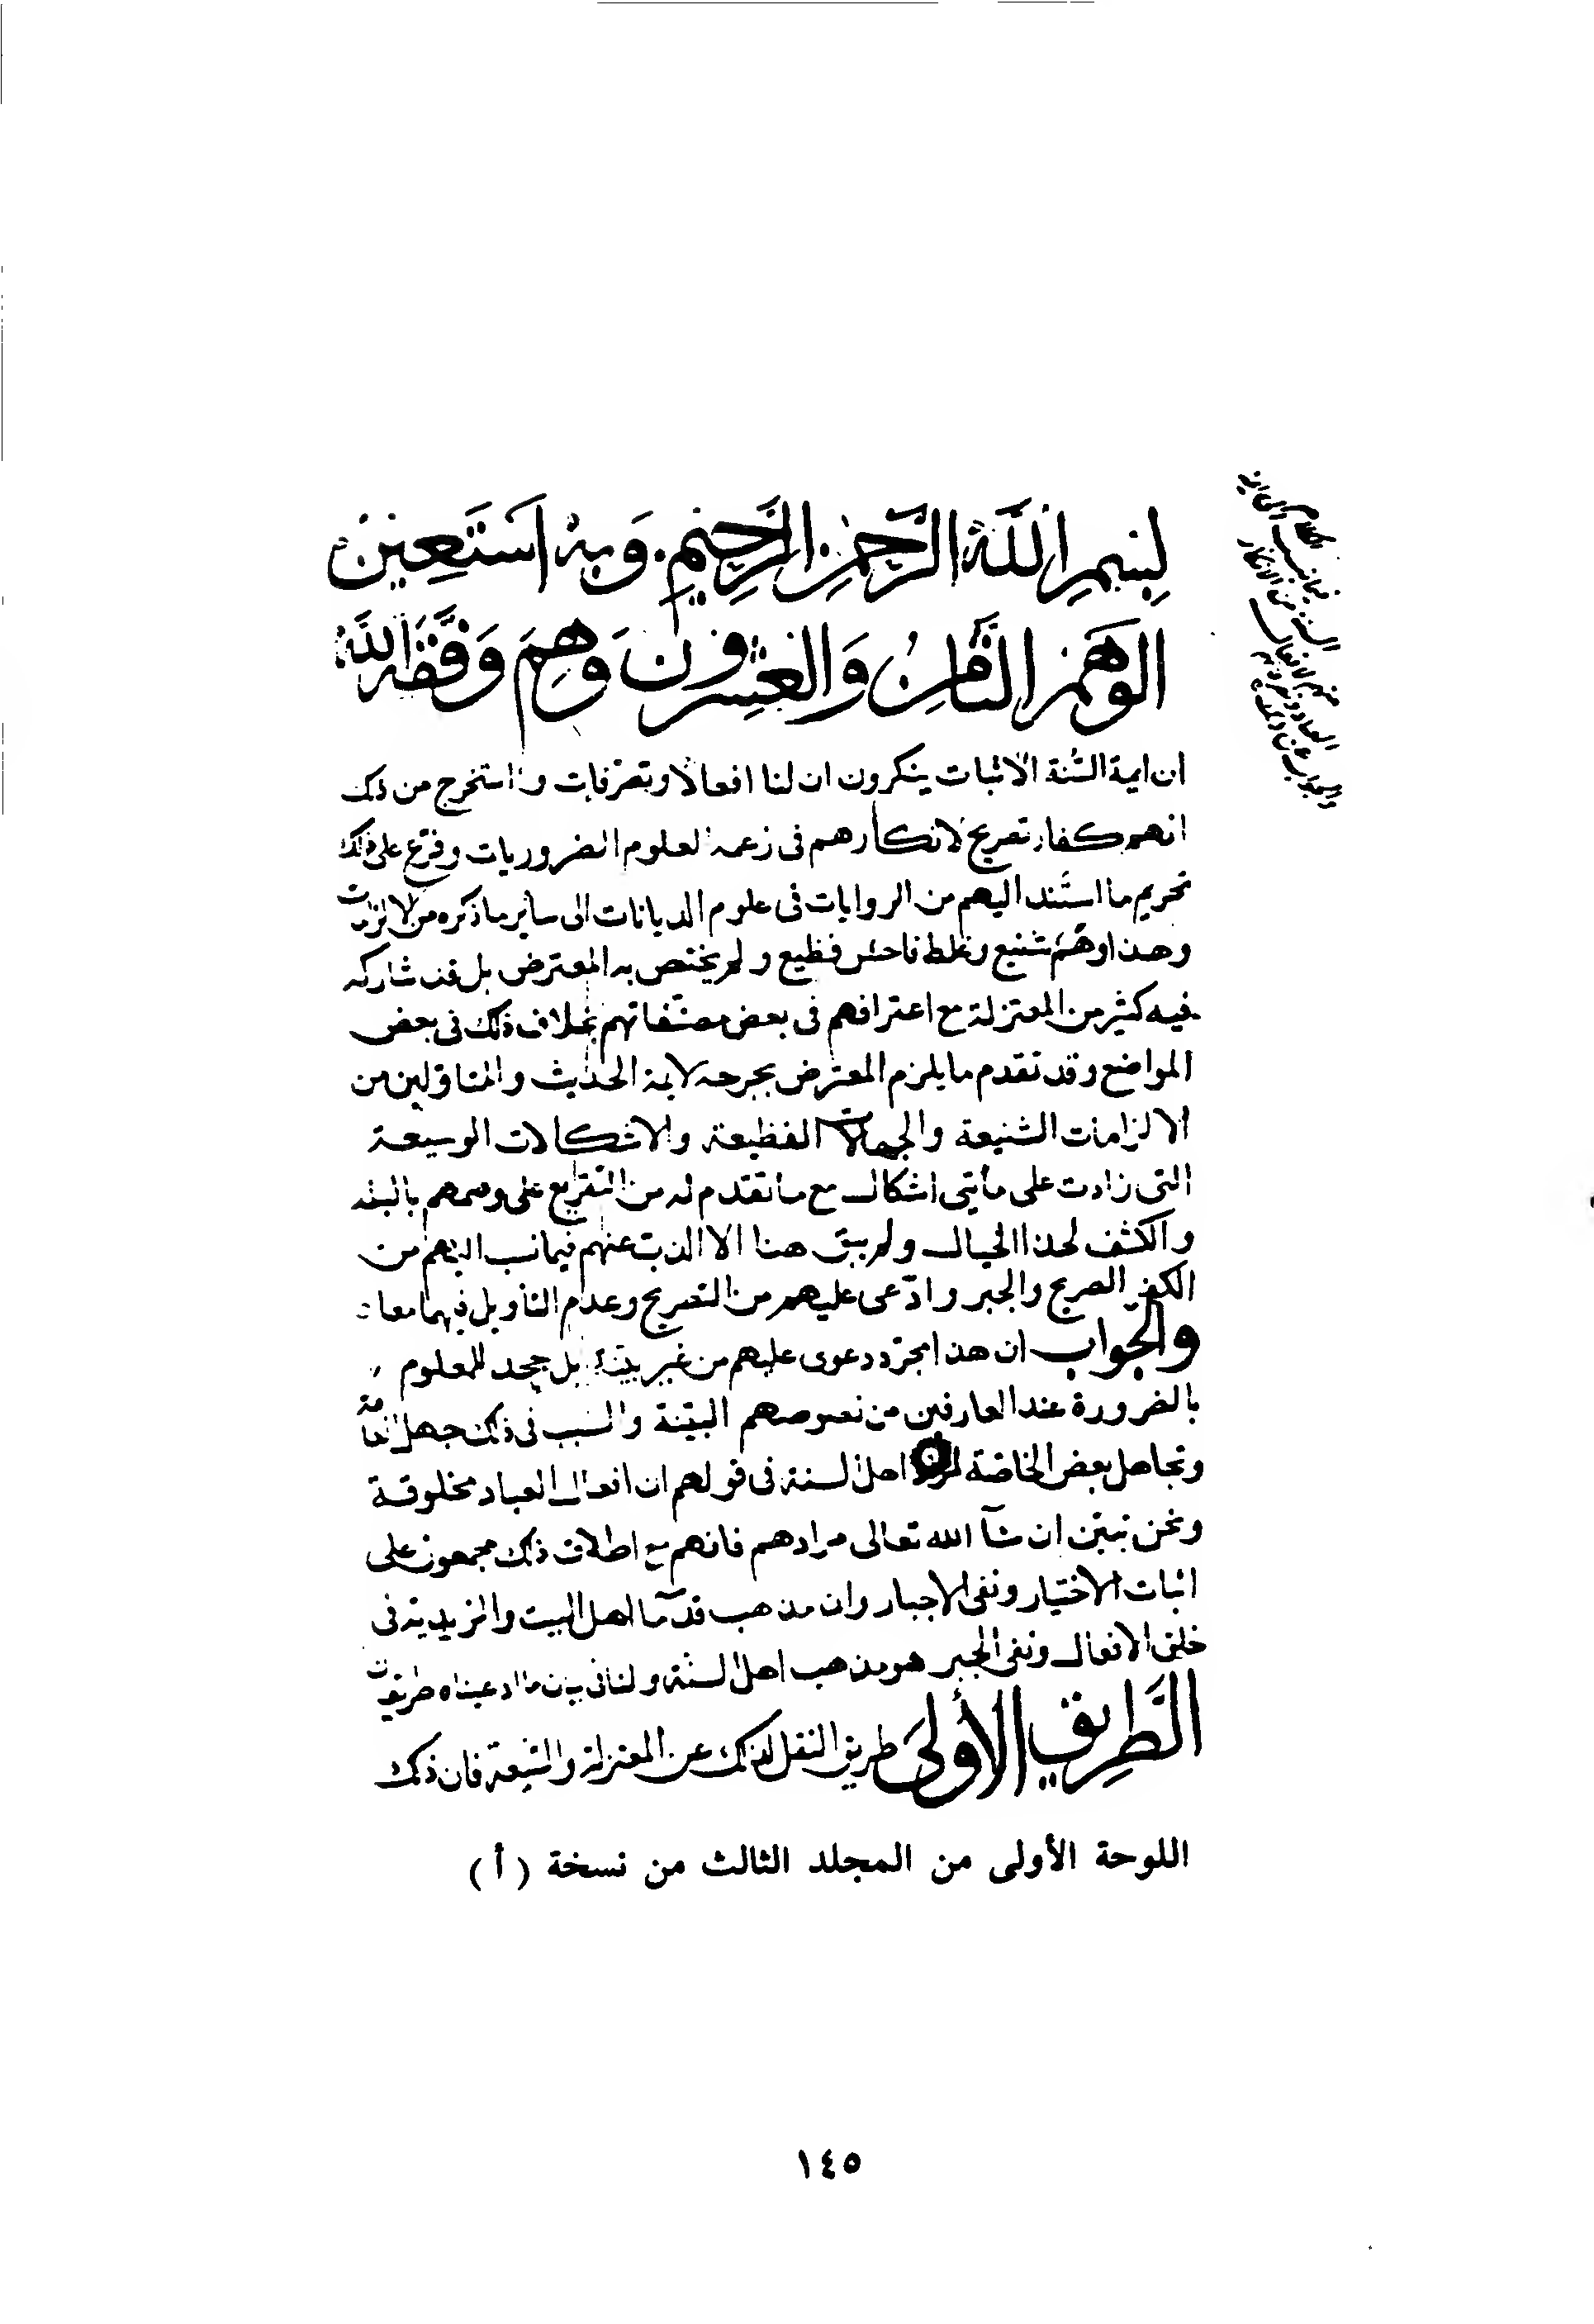 بسم الله الرحمن الرحيم . وبه استعين
الوهم الثامن والعشرون وهم وفقه الله
ان ايمة السُّنة الاثبات ينكرون ان لنا افعالا وتصرفات واستخرج من ذلك
انهم كفار تصريح لانكارهم فى زعمه العلوم الضروريات وفرّع على ذلك
تحريم ما استند اليهم من الروايات فى علوم الديانات الى ساير ما ذكره من الالزامات
وهذا وهْم شنيع وغلط فاحش فظيع ولم يختص به المعترض بل قد شاركه
فيه كثير من المعتزلة مع اعترافهم فى بعض مصنفاتهم بخلاف ذلك فى بعض
المواضع وقد تقدم ما يلزم المعترض بجرحه لايمة الحديث والمتاولين من
الالزامات الشنيعة والجهالات الفظيعة والاشكالات الوسيعة
التى زادت على مأيتى اشكال مع ما تقدم له من التقريع على وصمهم بالبله
والكشف لهذا الخيال ولم يبق هنا الا الذبّ عنهم فيما نسب اليهم من
الكفر الصريح والجبر وادّعى عليهم من التصريح وعدم التأويل فيهما معا
والجواب ان هذا مجرّد دعوى عليهم من غير بيّنة بل جحد للمعلوم
بالضرورة عند العارفين من نصوصهم البيّنة والسبب فى ذلك جهل العامة
وتجاهل بعض الخاصة لمراد اهل السنة فى قولهم ان افعال العباد مخلوقة
ونحن نبيّن ان شآ الله تعالى مرادهم فانهم مع اطلاق ذلك مجمعون على
اثبات الاختيار ونفى الاجبار وان مذهب قدمآ اهل البيت والزيدية فى
خلق الافعال ونفى الجبر هو مذهب اهل السنّة ولنا فى بيان ما ادعيناه طريقان
الطريق الأولى طريق النقل لذلك عن المعتزلة والشيعة فان ذلك
اللوحة الأولى من المجلد الثالث من نسخة ( أ )
١٤٥